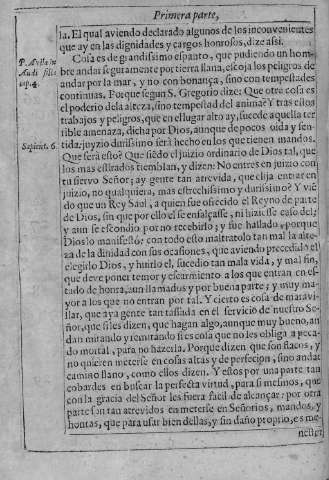 Primera parte,
la. El qual aviendo declarado algunos de los inconvenientes
que ay en las dignidades y cargos honrosos, dize assi.
P. Avila in
Audi filia
cap. 4.
Cosa es de grandissimo espanto, que pudiendo un hom-
bre andar seguramente por tierra llana, escoja los peligros de
andar por la mar, y no con bonança, sino con tempestades
continuas. Porque segun S. Gregorio dize: Que otra cosa es
el poderio de la alteza, sino tempestad del anima? Y tras estos
trabajos y peligros, que en el lugar alto ay, sucede aquella ter
rible amenaza, dicha por Dios, aunque de pocos oida y sen-
Sapient. 6.
tida: juyzio durissimo será hecho en los que tienen mandos.
Que será esto? Que siẽdo el juizio ordinario de Dios tal, que
los mas estirados tiemblan, y dizen: No entres en juizio con
tu siervo Señor; ay gente tan atrevida, que elija entrar en
juizio, no qualquiera, mas estrechissimo y durissimo? Y viẽ
do que un Rey Saul, a quien fue ofrecido el Reyno de parte
de Dios, sin que por ello el se ensalçasse, ni hiziesse caso del;
y aun se escondio por no recebirlo; y fue hallado, porque
Dios lo manifestó: con todo esto maltratolo tan mal la alte-
za de la dinidad con sus ocasiones, que aviendo precedido el
elegirlo Dios, y huirlo el, sucedio tan mala vida, y mal fin,
que deve poner temor y escarmiento a los que entran en es-
tado de honra, aun llamados y por buena parte; y muy ma-
yor a los que no entran por tal. Y cierto es cosa de maravi-
llar, que aya gente tan tassada en el servicio de nuestro Se-
ñor, que si les dizen, que hagan algo, aunque muy bueno, an
dan mirando y remirando si es cosa que no les obliga a peca-
do mortal, para no hazerla. Porque dizen que son flacos, y
no quieren meterse en cosas altas y de perfecion, sino andar
camino llano, como ellos dizen. Y estos por una parte tan
cobardes en buscar la perfecta virtud, para si mesmos, que
con la gracia del Señor les fuera facil de alcançar: por otra
parte son tan atrevidos en meterse en Señorios, mandos, y
honras, que para usar bien dellas, y sin daño proprio, es me-
nester